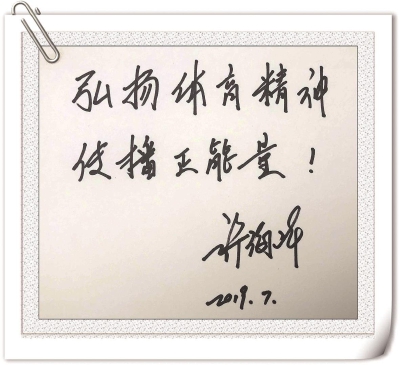 弘扬体育精神
传播正能量！
许海峰
2019.7.